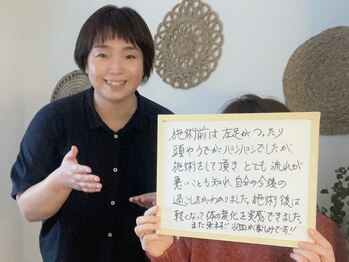 施術前は 左足がつったり
頭やうでがパンパンでしたが
施術をして頂き とても 流れが
悪いことも知れ 自分の今後の
過ごしかたわかりました。施術後は
軽くなって体の変化を実感できました。
また来ます!! 次回が楽しみです!!